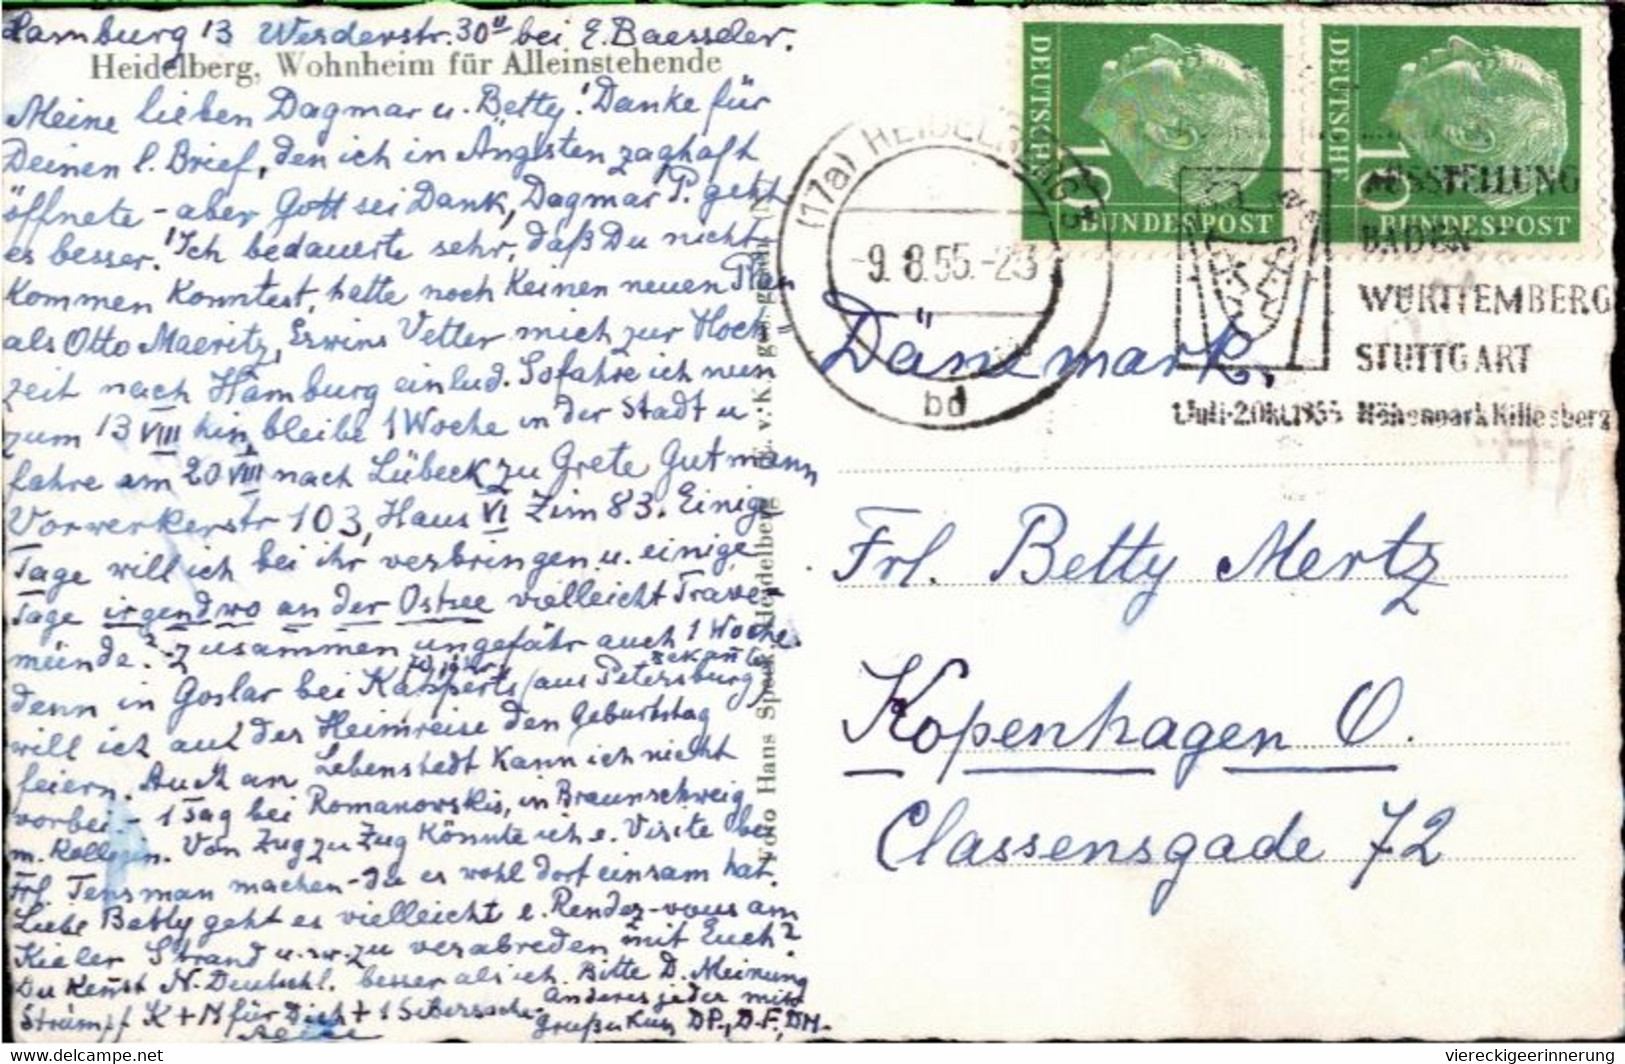 Hamburg 13 Werderstr. 30 II bei E. Baesseler.
Heidelberg, Wohnheim für Alleinstehende
Meine lieben Dagmar u. Betty! Danke für
Deinen l. Brief, den ich in Ängsten zaghaft
öffnete - aber Gott sei Dank, Dagmar P. geht
es besser. Ich bedauerte sehr, daß Du nicht
kommen konntest, hatte noch keinen neuen Plan
als Otto Maeritz, Erwins Vetter mich zur Hoch=
zeit nach Hamburg einlud. So fahre ich nun
zum 13 VIII hin, bleibe 1 Woche in der Stadt u
fahre am 20 VIII nach Lübeck zu Grete Gutmann
Vorwerkerstr 103, Haus VI Zim 83. Einige
Tage will ich bei ihr verbringen u. einige
Tage irgendwo an der Ostsee vielleicht Trave-
münde? - zusammen ungefähr auch 1 Woche.
denn in Goslar bei Kapperts (aus Petersburg
bekannte
will ich auf der Heimreise den Geburtstag
feiern. Auch an Lebenstedt kann ich nicht
vorbei - 1 Tag bei Romanowskis, in Braunschweig
m. Kollegin. Von Zug zu Zug könnte ich e. Visite bei
Frl. Tensman machen - die es wohl dort einsam hat.
Liebe Betty geht es vielleicht e. Rendez-vous am
Kieler Strand u.s.w. zu verabreden mit Euch?
Du kennst N-Deutschl. besser als ich. Bitte D. Meinung
Strümpf K + N für Dich + 1 Silbersache. Anderes jeder mitt
Gruß u Kuss DP., D.F., DM.
Foto Hans Speck, Heidelberg
DEUTSCHE
10
BUNDESPOST
DEUTSCHE
10
BUNDESPOST
(17a) HEIDELBERG 5
-9. 8. 55. -23
bd
AUSSTELLUNG
BADEN-
WÜRTTEMBERG
STUTTGART
1Juli-2.Okt.1955 Höhenpark Killesberg
Dänemark.
Frl. Betty Mertz
Kopenhagen O.
Classensgade 72
viereckigeerinnerung